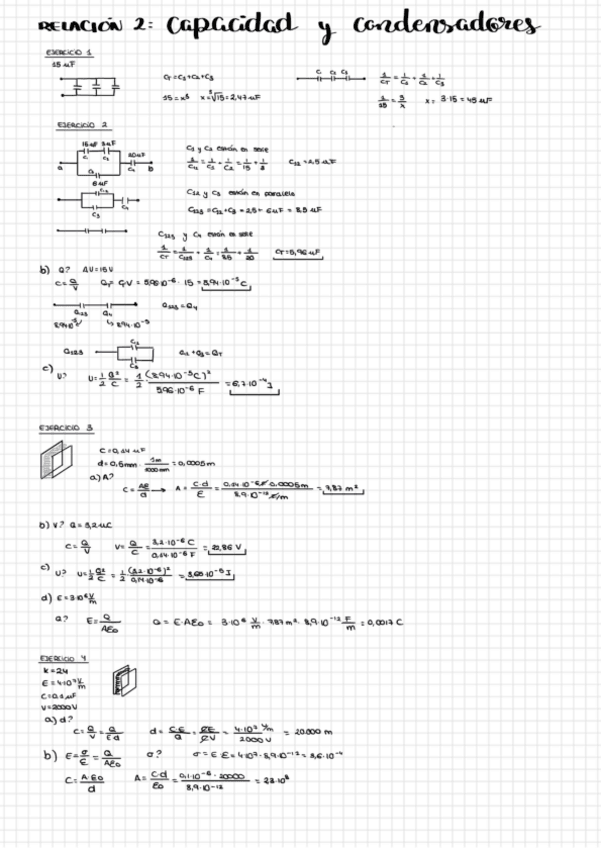 RELACIÓN 2: Capacidad y condensadores
EJERCICIO 1
15 uF
CT = C1 + C2 + C3
15 = x³ x = ³√15 = 2,47 uF
C1 C2 C3
1/CT = 1/C1 + 1/C2 + 1/C3
1/15 = 3/x x = 3·15 = 45 uF
EJERCICIO 2
15 uF 3uF
C1 C2 20uF
a C4 b
6 uF
C1 y C2 están en serie
1/C12 = 1/C1 + 1/C2 = 1/15 + 1/3 C12 = 2,5 uF
C12 y C3 están en paralelo
C3 C4
C123 = C12 + C3 = 2,5 + 6 uF = 8,5 uF
C123 y C4 están en serie
1/CT = 1/C123 + 1/C4 = 1/8,5 + 1/20 CT = 5,96 uF
b) Q? ΔV = 15V
C = Q/V QT = CT·V = 5,96·10⁻⁶ · 15 = 8,94·10⁻⁵ C
Q123 Q4 Q123 = Q4
8,94·10⁻⁵ ↳ 8,94·10⁻⁵
C12
Q123 Q12 + Q3 = QT
C3
c) U? U = 1/2 Q²/C = 1/2 · (8,94·10⁻⁵C)²/5,96·10⁻⁶ F = 6,7·10⁻⁴ J
EJERCICIO 3
C = 0,14 uF
d = 0,5mm · 1m/1000mm = 0,0005m
a) A?
C = Aε/d → A = C·d/ε = 0,14·10⁻⁶F·0,0005m/8,9·10⁻¹² F/m = 7,87 m²
b) V? Q = 3,2uC
C = Q/V V = Q/C = 3,2·10⁻⁶ C/0,14·10⁻⁶ F = 22,86 V
c) U? U = 1/2 Q²/C = 1/2 · (3,2·10⁻⁶)²/0,14·10⁻⁶ = 3,66·10⁻⁵ J
d) E = 3·10⁶ V/m
Q? E = Q/Aε0 Q = E·Aε0 = 3·10⁶ V/m · 7,87 m² · 8,9·10⁻¹² F/m = 0,0017 C
EJERCICIO 4
k = 24
E = 4·10⁷ V/m
C = 0,1 uF
V = 2000V
a) d?
C = Q/V = Q/Ed d = CE/Q = CE/CV = 4·10⁷ V/m/2000 V = 20.000 m
b) E = σ/ε = Q/Aε0 σ? σ = E·ε = 4·10⁷·8,9·10⁻¹² = 3,6·10⁻⁴
C = A·ε0/d A = C·d/ε0 = 0,1·10⁻⁶ · 20000/8,9·10⁻¹² = 2,2·10⁸